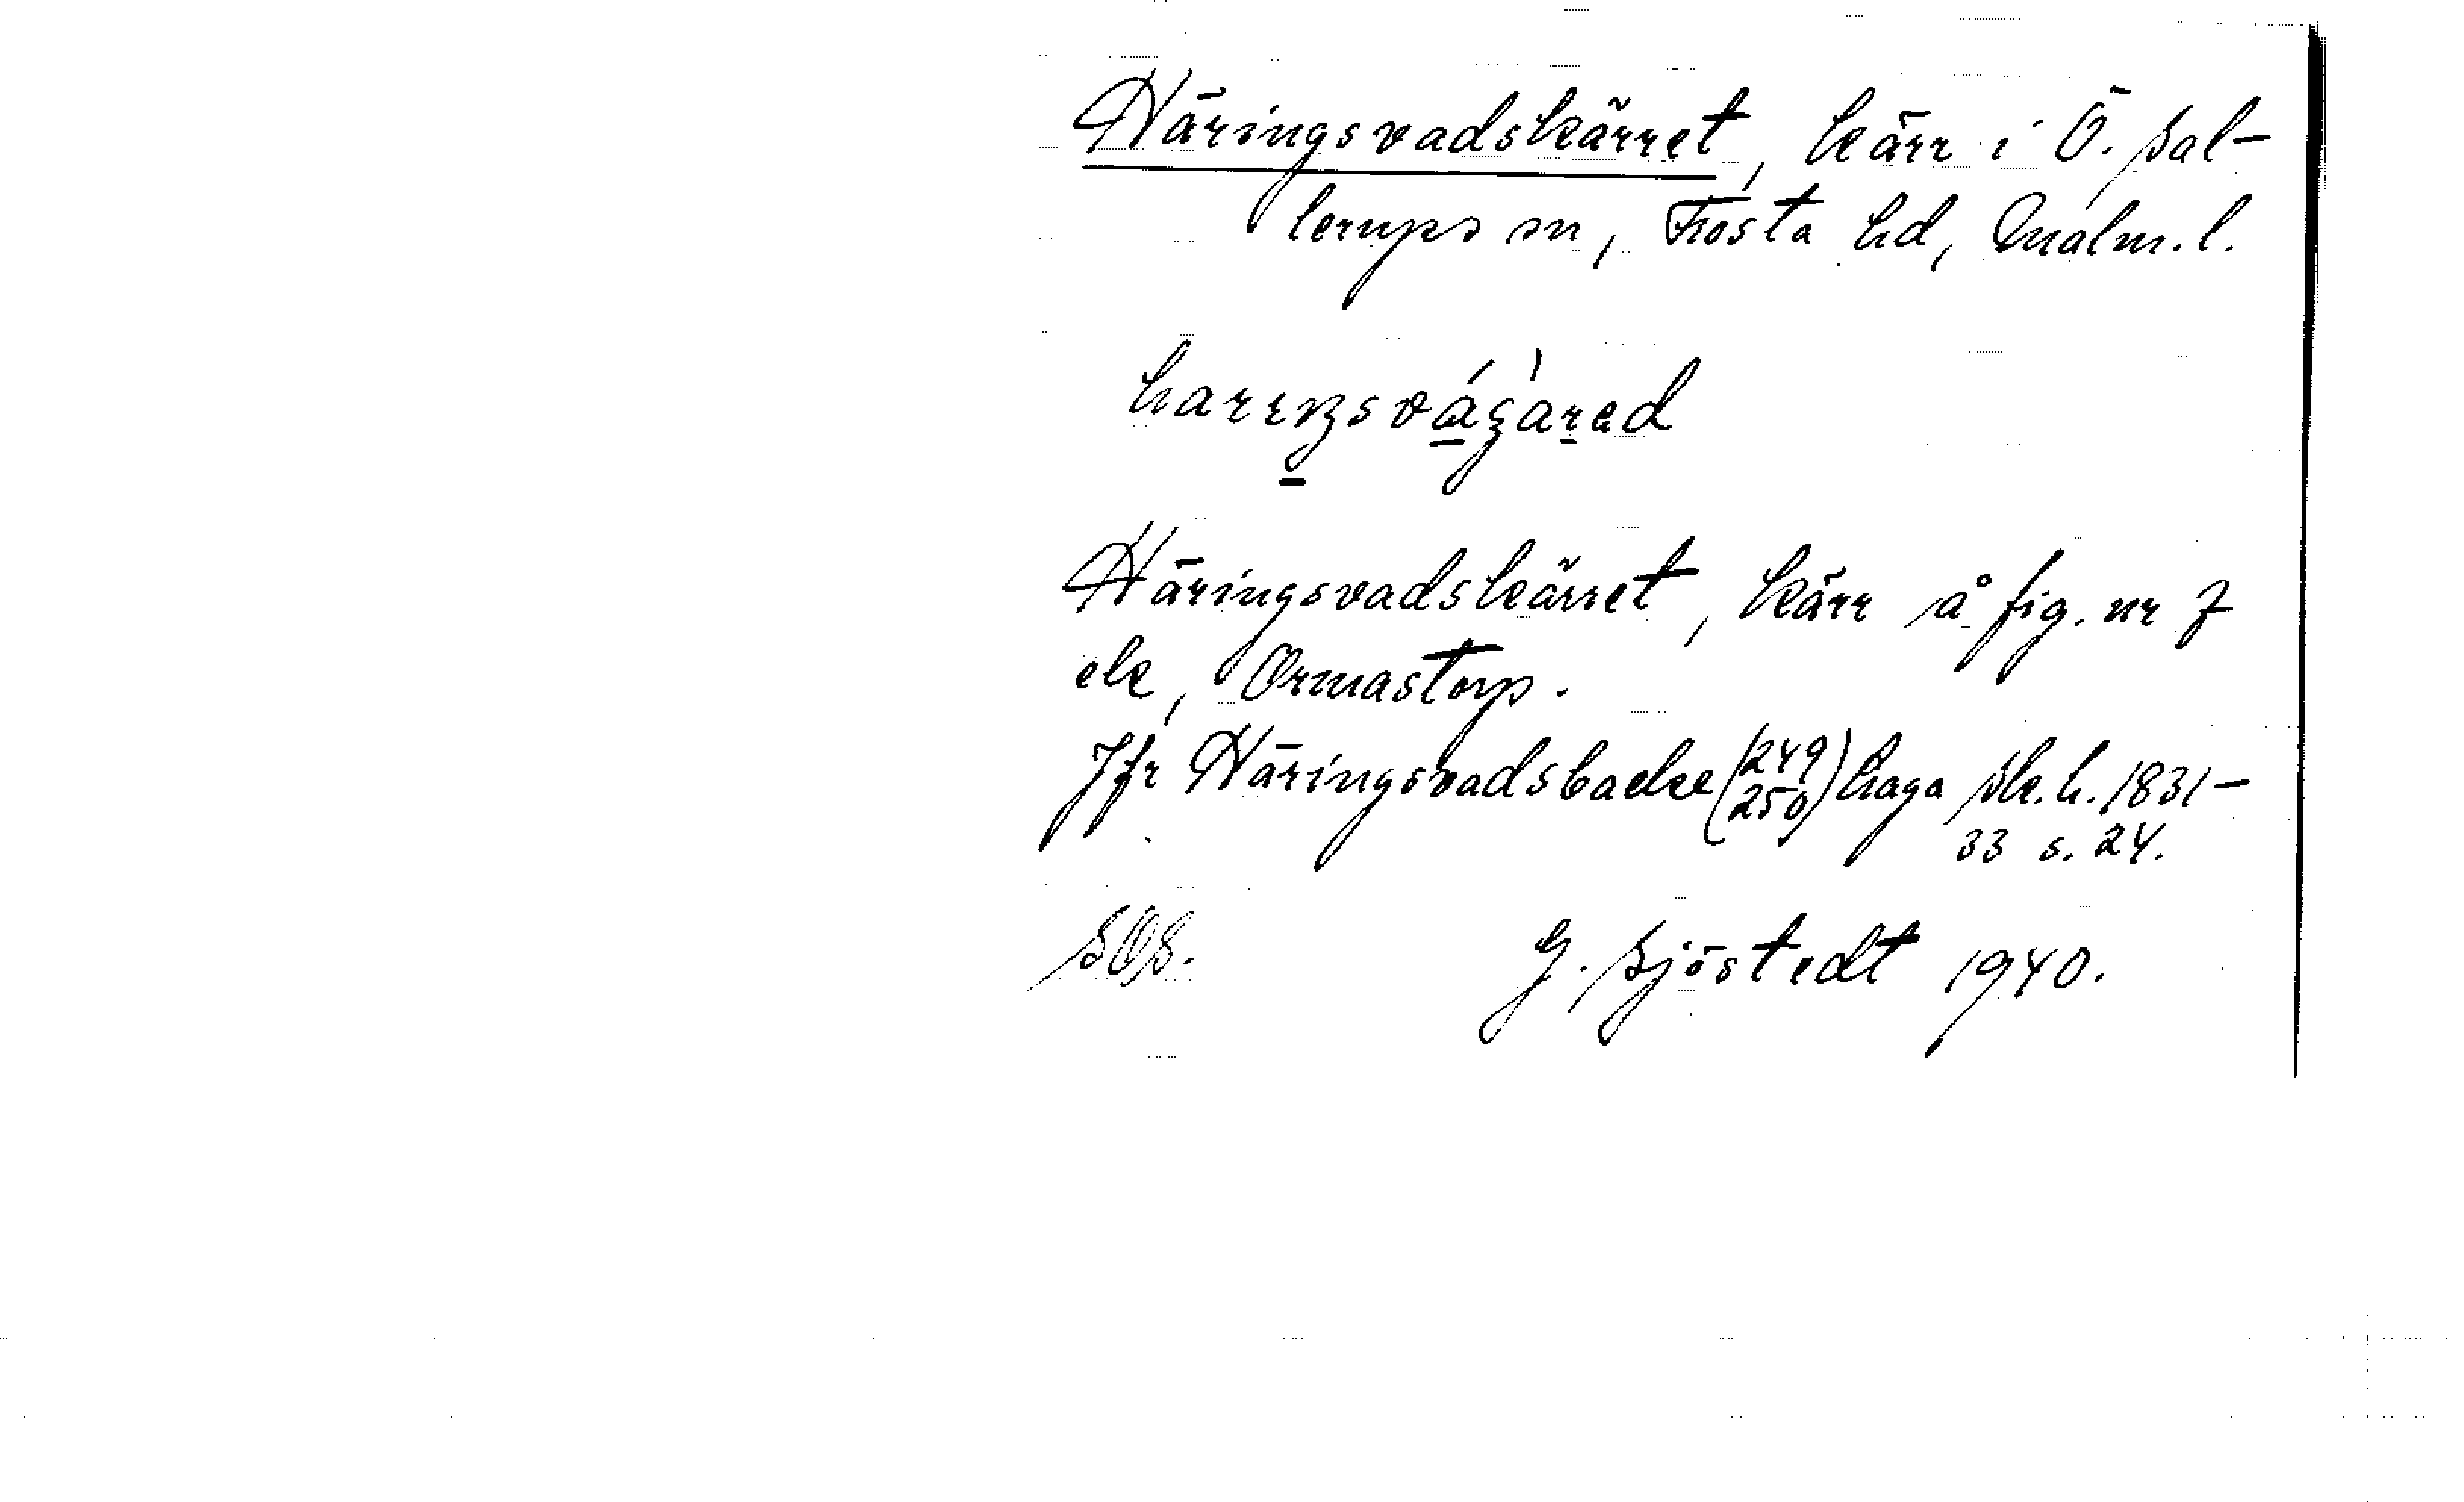 Häringsvadskärret, kärr i Ö. Sal-
lerups sn, Frosta hd, Malm. l.
Häringsvadskärret, kärr å fig. nr 7
ek, Ormastorp.
Jfr Häringsvadsbacke (249 250) haga Sk. h. 1831-
33 s. 24.
SOS.
G. Sjöstedt 1940.